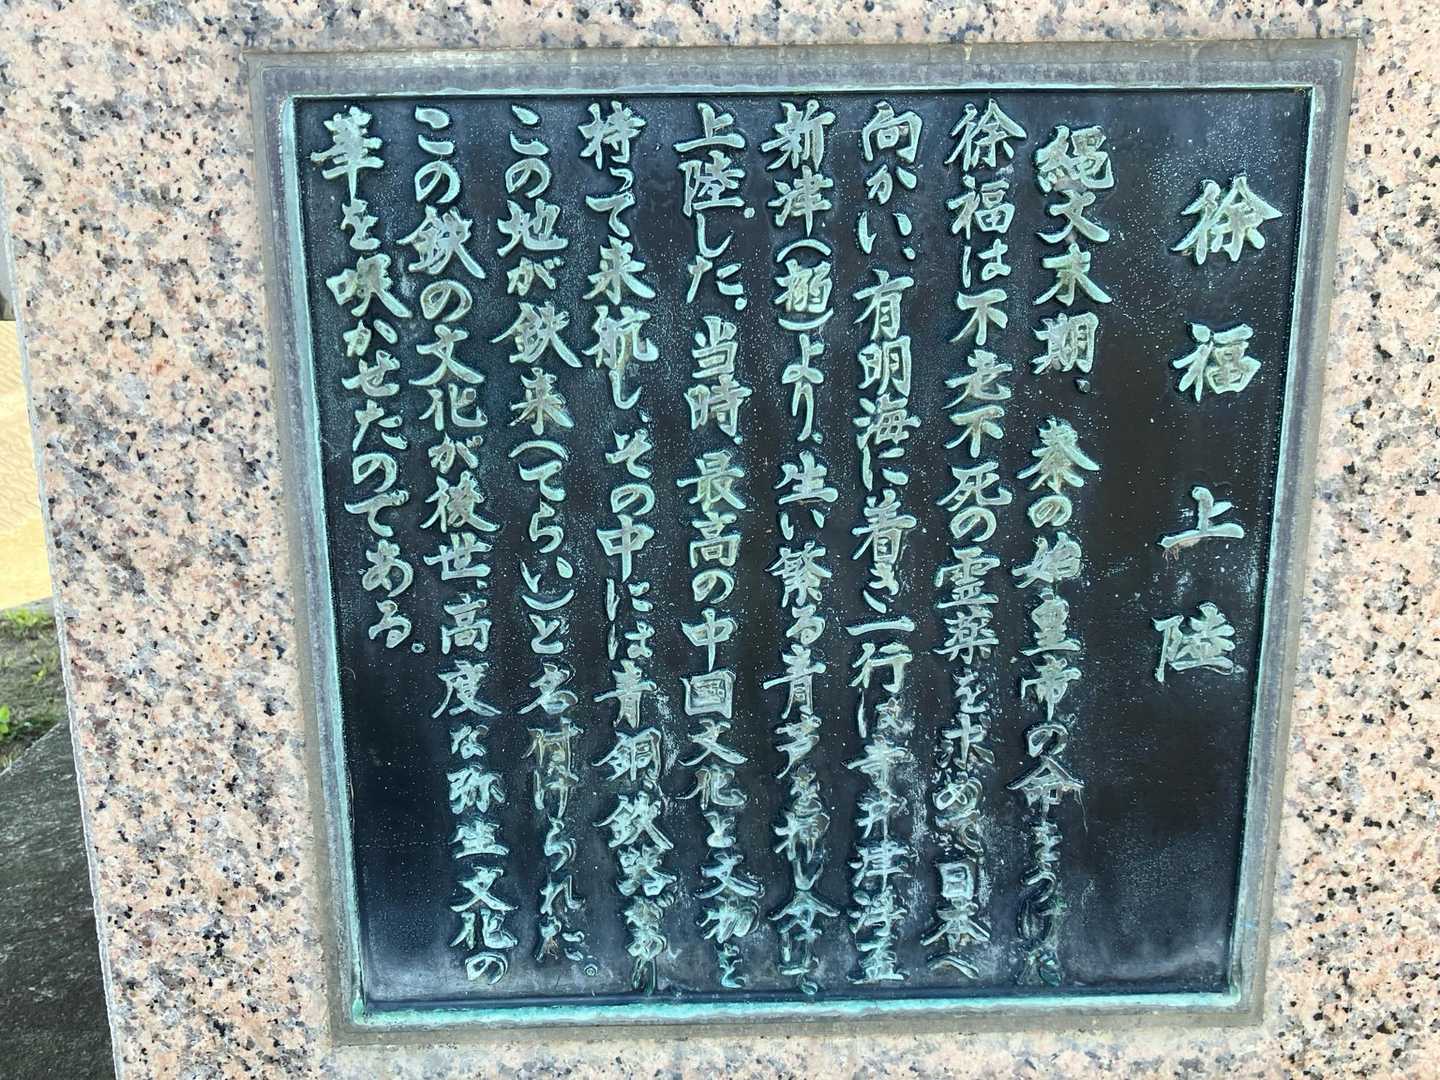 徐福上陸
縄文末期、秦の始皇帝の命をうけた
徐福は不老不死の霊薬を求めて、日本へ
向かい、有明海に着き一行は寺井津浮盃
新津(搦)より、生い繁る青芦を押し分けて
上陸した。当時、最高の中国文化と文物を
持って来航し、その中には青銅、鉄路があり
この地が鉄来(てらい)と名付けられた。
この鉄の文化が後世、高度な弥生文化の
華を咲かせたのである。